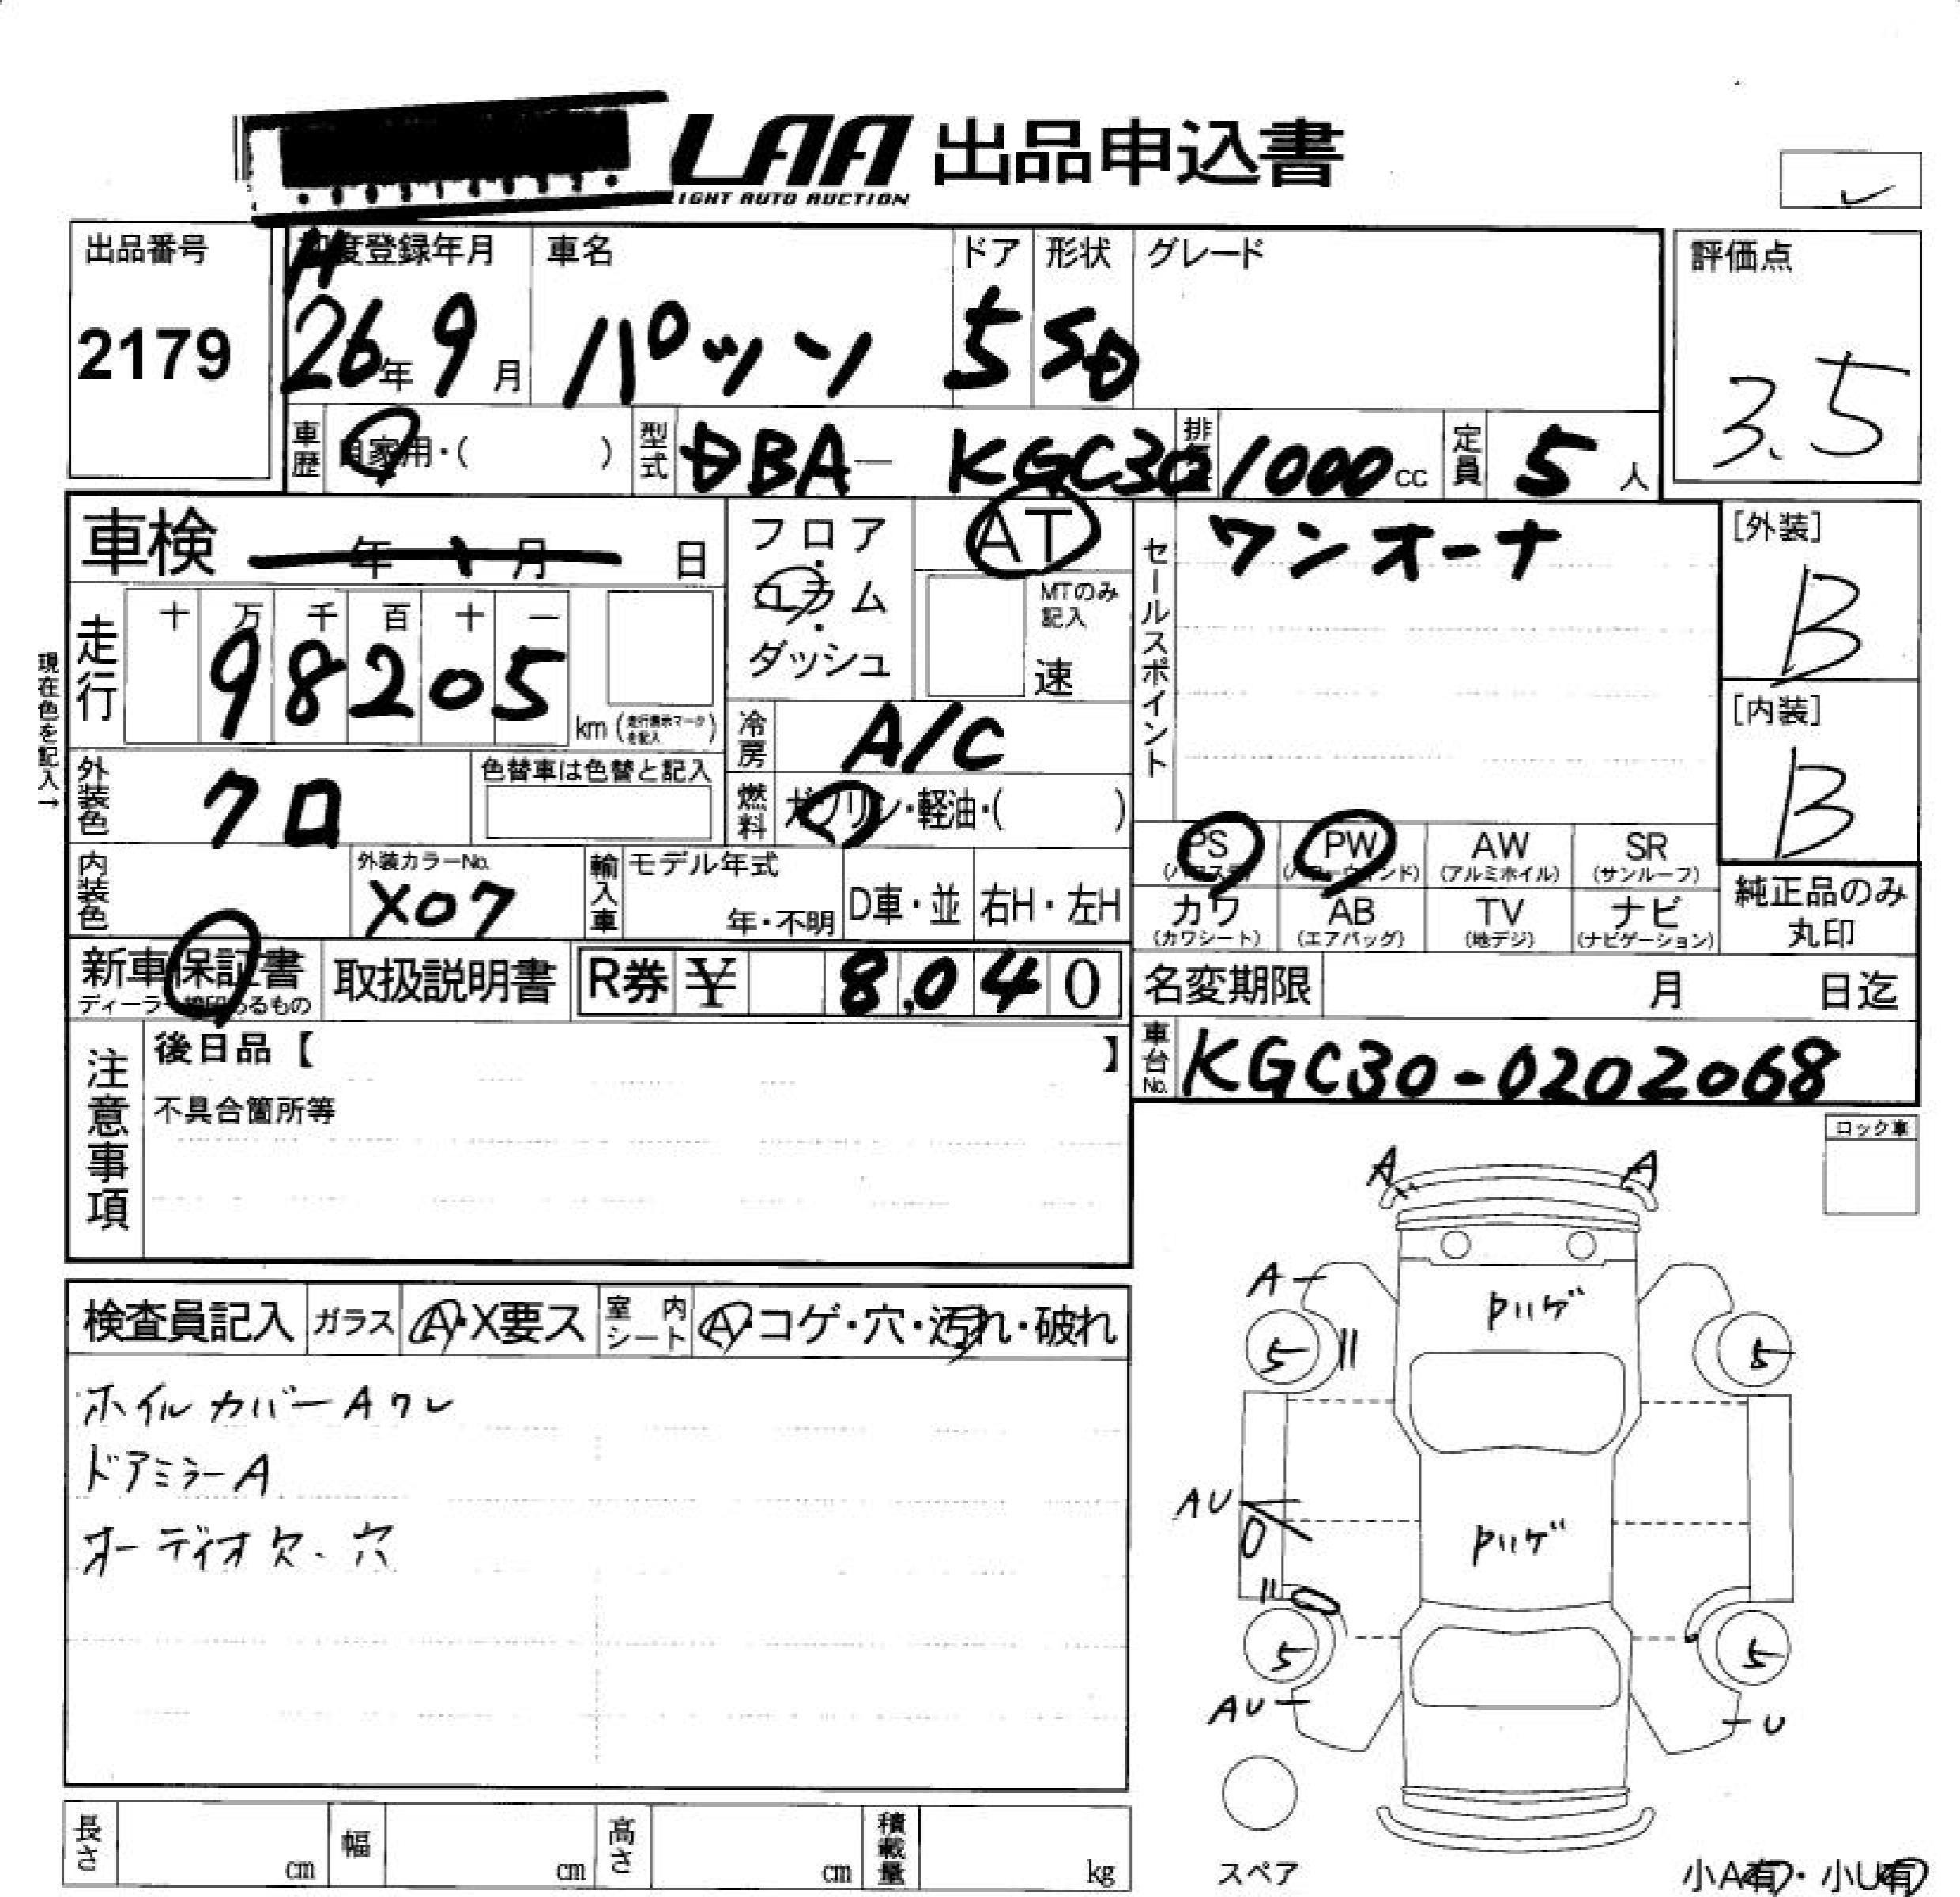 LAA 出品申込書
LIGHT AUTO AUCTION
出品番号
2179
H
初度登録年月
26年9月
車名
パッソ
ドア
5
形状
SD
グレード
評価点
3.5
車歴
自家用・( )
型式
DBA- KGC30
排気
1000cc
定員
5人
車検 年 月 日
フロア・コラム・ダッシュ
AT
MTのみ記入
速
セールスポイント
ワンオーナ
[外装]
B
[内装]
B
現在色を記入→
走行
十万千百十一
98205
km (走行表示マークを記入)
冷房
A/C
外装色
クロ
色替車は色替と記入
燃料
ガソリン・軽油・( )
PS (パワステ)
PW (パワーウインド)
AW (アルミホイル)
SR (サンルーフ)
カワ (カワシート)
AB (エアバッグ)
TV (地デジ)
ナビ (ナビゲーション)
純正品のみ丸印
内装色
外装カラーNo.
X07
輸入車
モデル年式
年・不明
D車・並
右H・左H
新車保証書
ディーラー捺印あるもの
取扱説明書
R券 ¥ 8,040
名変期限 月 日迄
車台No.
KGC30-0202068
注意事項
後日品【 】
不具合箇所等
ロック車
検査員記入
ガラス
A・X要ス
室内シート
A・コゲ・穴・汚れ・破れ
ホイルカバーAワレ
ドアミラーA
オーディオ欠、穴
A
A
A
5
5
ハゲ
AU
ハゲ
5
5
AU
U
スペア
小A有・小U有
長さ cm
幅 cm
高さ cm
積載量 kg